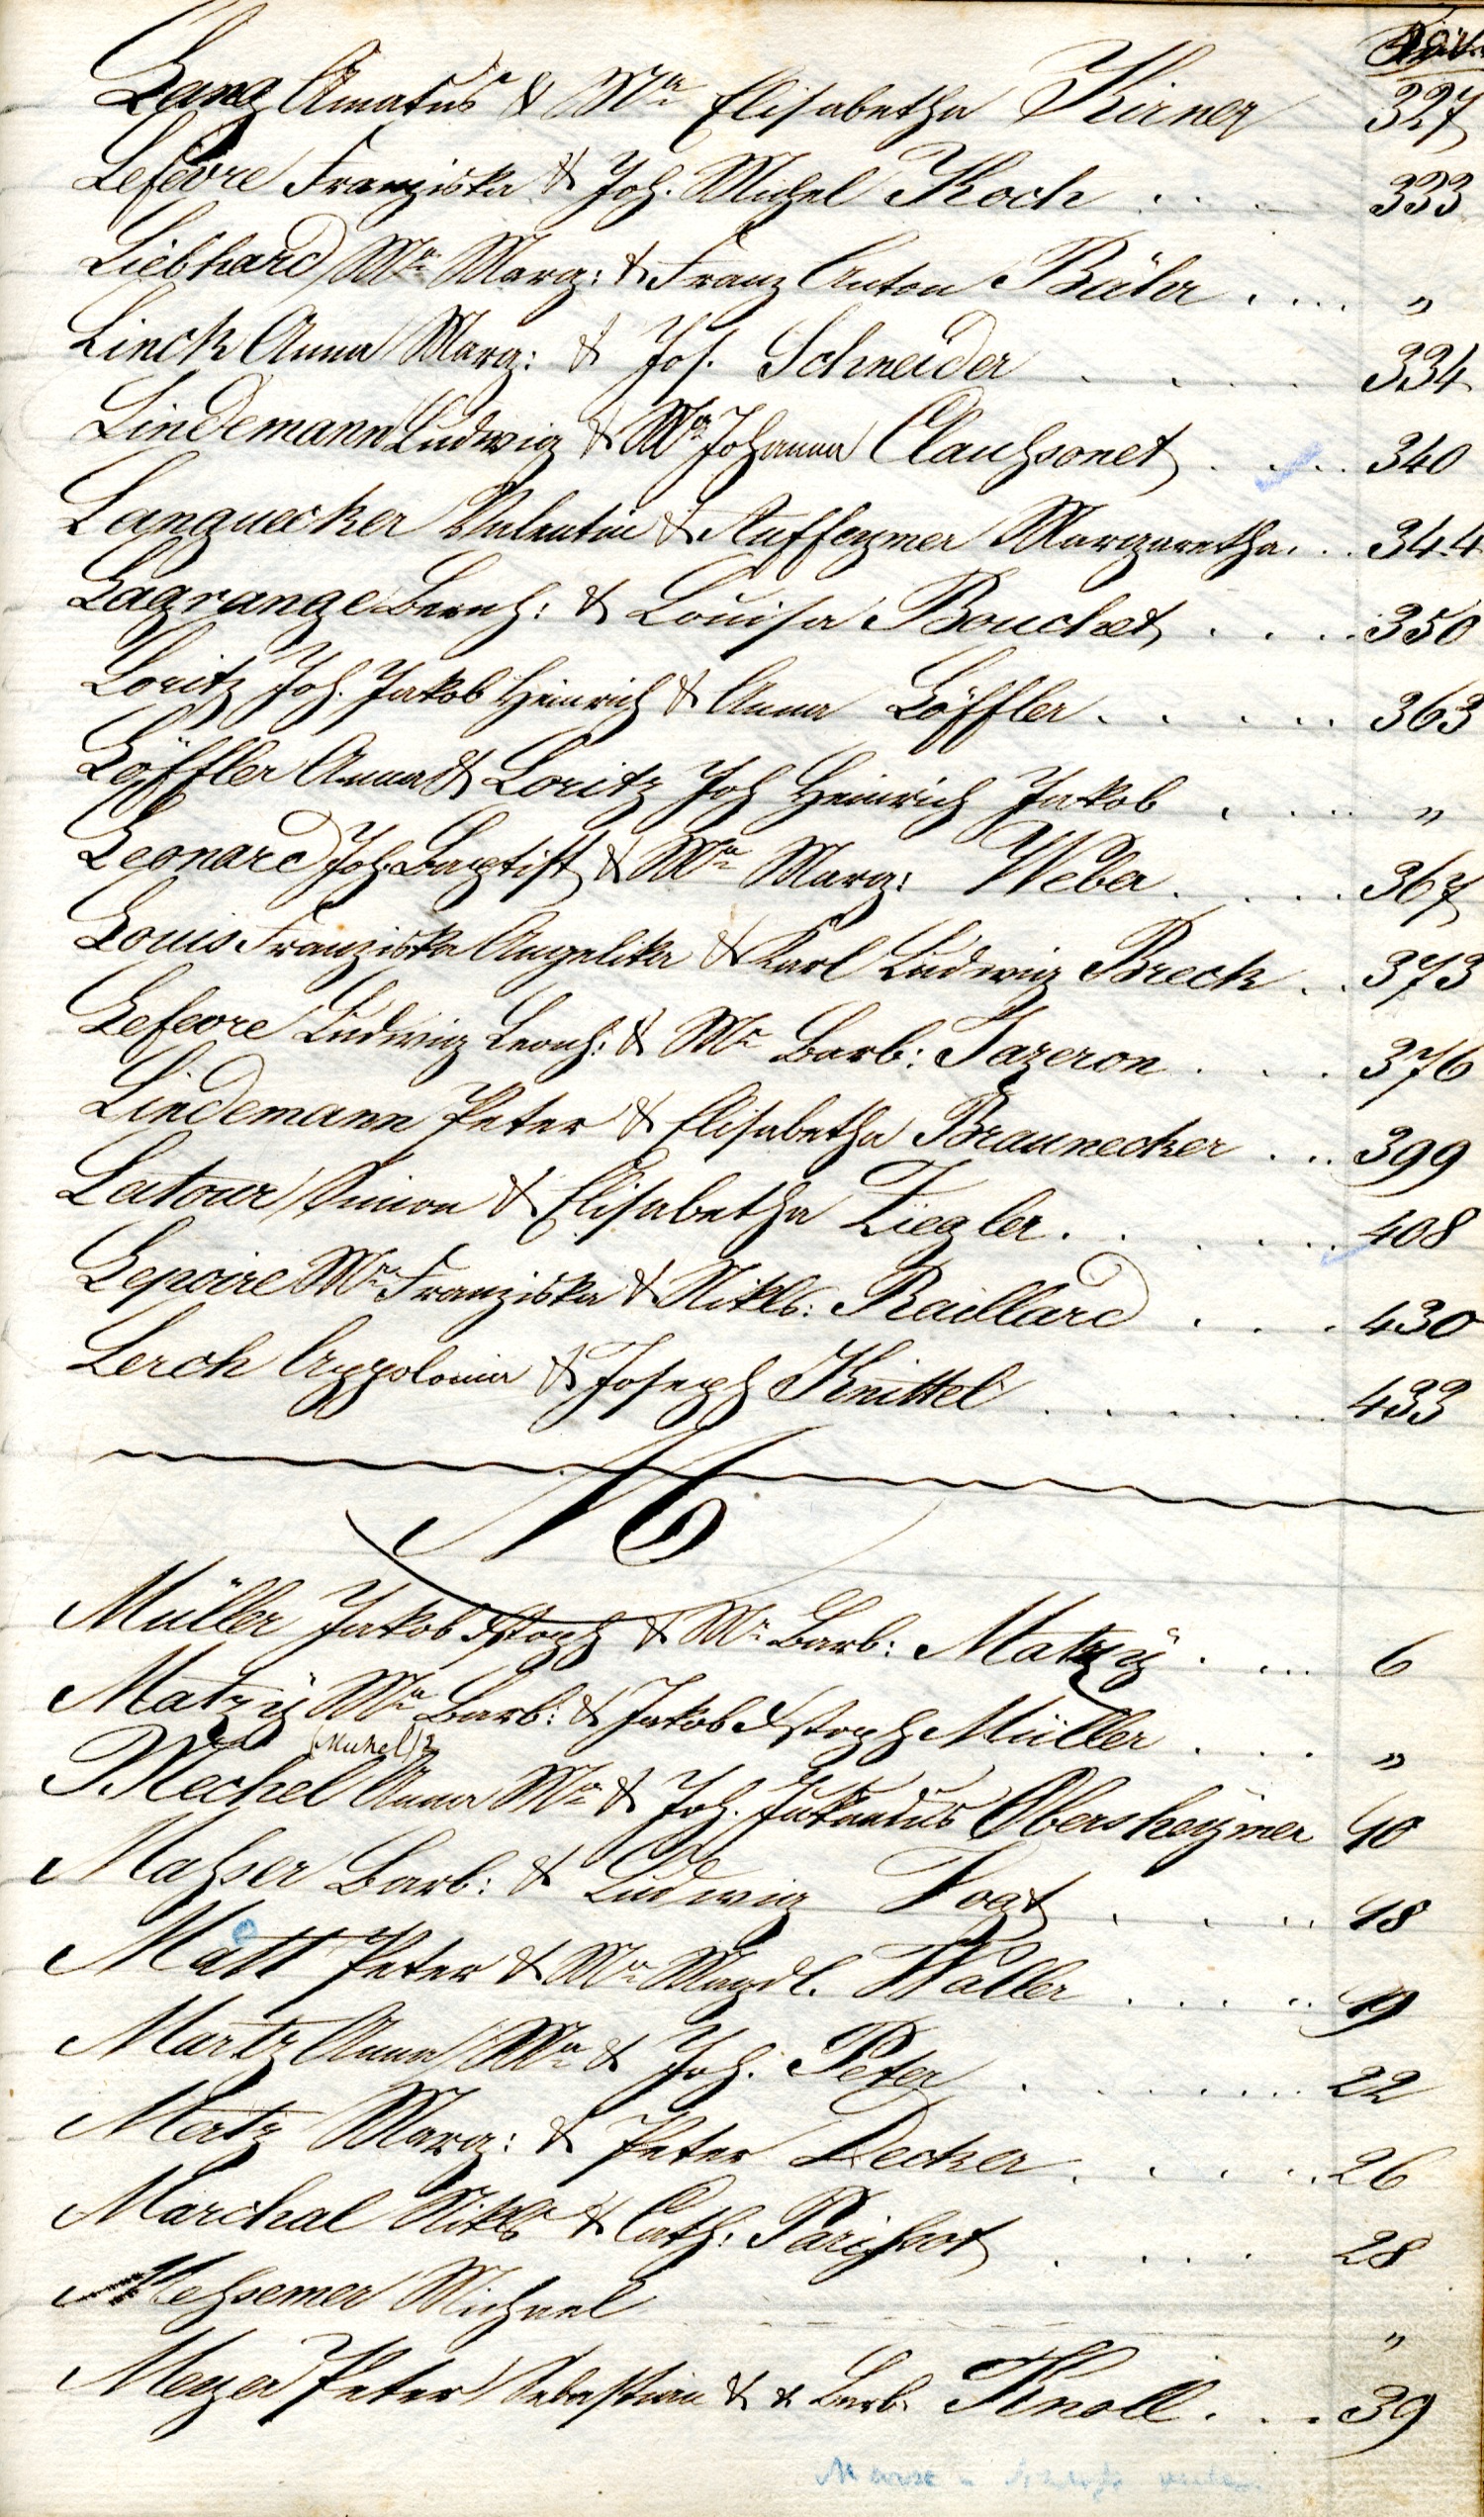 Lang Amatus & Ma Elisabetha Kirner 327
Lefevre Franziska & Joh. Michel Koch . . . 333
Liebhard Ma Marg: & Franz Anton Bähr . . . . "
Linck Anna Marg: & Jos. Schneider . . . . 334
Lindemann Ludwig & Ma Johanna Claußonet . . . . 340
Languecker Valentin & Auffeymer Margaretha . . . 344
Lagrange Bernh: & Louisa Bouchet . . . . 350
Loritz Joh. Jakob Heinrich & Anna Löffler . . . . . 363
Löffler Anna & Loritz Joh Heinrich Jakob . . . . "
Leonard Joh. Baptist & Ma Marg: Weber . . . . 367
Louis Franziska Angelika & Karl Ludwig Breck . . 373
Lefevre Ludwig Leonh: & Ma Barb: Fazeron . . . 376
Lindemann Peter & Elisabetha Braunecker . . . 399
Latour Simon & Elisabetha Ziegler . . . . . . 408
Lepoire Ma Franziska & Nikls: Raillard . . . 430
Lerch Appolonia & Joseph Knittel . . . . . . 433
M
Müller Jakob & Ma Barb: Matzÿ . . . . 6
Matzÿ Ma Barb: & Jakob Müller . . . "
(Michel)?
Mechel Anna Ma & Joh. Obersheÿmer 10
Maßer Barb: & Ludwig Vogt . . . . 18
Matt Peter & Ma Magdl. Waller . . . . . 19
Martz Anna Ma & Joh. Peter . . . . . . 22
Mertz Marg: & Peter Decker . . . . . 26
Marchal Nikls & Cath: Parißot . . . . 28
Meßemer Michael "
Meyer Peter Sebastian & Barb. Knoll . . . 39